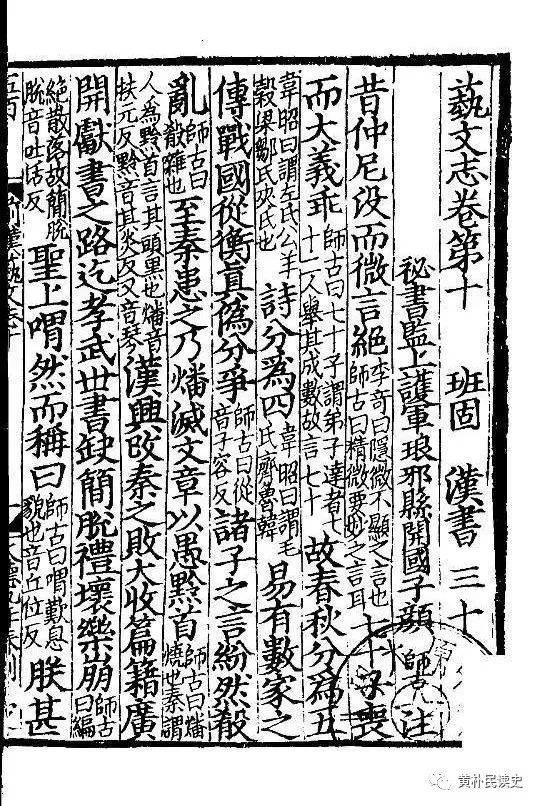 藝文志卷第十 班固 漢書三十
祕書監上護軍琅邪縣開國子顏師古注
昔仲尼没而微言絶李奇曰隱微不顯之言也師古曰精微要妙之言耳七十子喪
而大義乖師古曰七十子謂弟子達者七十二人舉其成數故言七十故春秋分爲五
韋昭曰謂左氏公羊穀梁鄒氏夾氏也詩分爲四韋昭曰謂毛氏齊魯韓易有數家之
傳戰國從衡真僞分爭師古曰從音子容反諸子之言紛然殽
亂師古曰殽雜也至秦患之乃燔滅文章以愚黔首師古曰燔燒也秦謂
人爲黔首言其頭黑也燔音扶元反黔音其炎反又音琴漢興改秦之敗大收篇籍廣
開獻書之路迄孝武世書缺簡脱禮壞樂崩師古曰編
絶散落故簡脱脱音吐活反聖上喟然而稱曰師古曰喟歎息貌也音丘位反朕甚
黄朴民读史